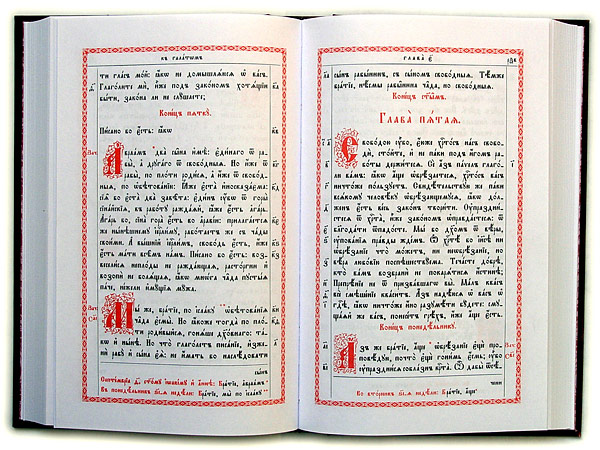 Къ галатѡмъ
ти гласъ мой: ꙗкѡ не домышлѧюсѧ ѡ васъ.
Глаголите ми, иже под закономъ хотѧщїи
быти, закона ли не слушаете;
Конецъ пѧтку.
Писано во есть: ꙗкѡ
Авраамъ два сына имѣ: единаго ѿ ра-
бы, а другаго ѿ свободныѧ. Но иже ѿ
рабы, по плоти родисѧ, а иже ѿ свобод-
ныѧ, по ѡбѣтованїю: Ꙗже єста иносказаєма:
сїѧ бо еста два завѣта: единъ ѹбѡ ѿ горы
сїнайскїѧ, въ работу раждаѧй, иже есть агарь.
Агарь бо, сїна гора есть во аравїи: прилагаетсѧ
же нынѣшнему їерⷭ҇лиму, работаетъ же съ чады
своими. А вышнїй їерⷭ҇лимъ, свободь есть, иже
есть мати всѣмъ намъ. Писано бо есть: воз-
веселисѧ неплоды не раждающаѧ, расторгни и
возопїй не болѧщаѧ, ꙗкѡ многа чада пустыѧ
паче, нежели имущїѧ мужа.
Мы же, братїе, по ісааку ѡбѣтованїѧ
чада есмы. Но ꙗкоже тогда по пло-
ти родивыйсѧ, гонѧше дꙋховнаго: та-
кѡ и нынѣ. Но что глаголетъ писанїе, изже-
ни рабу и сына еѧ: не имать бо наслѣдовати
сынъ
Септемврїа д҃, ст҃ому їѡакіму и аннѣ: Братїе, авраамъ
Въ понедѣльникъ і҃і-ѧ недѣли: Братїе, мы по ісааку
Глава є҃
сынъ рабынинъ, съ сыномъ свободныѧ. Тѣмже
братїе, нѣсмы рабынина чада, но свободныѧ.
Конецъ ст҃ымъ.
Глава пѧтаѧ.
Свободою ѹбѡ, еюже хрⷭ҇тосъ насъ свобо-
ди, стойте, и не паки подъ игомъ рабо-
ты держитесѧ. Се азъ паѵелъ глаго-
лю вамъ: ꙗкѡ аще ѡбрѣзаетесѧ, хрⷭ҇тосъ васъ
ничтоже пользуетъ. Свидѣтельствую же паки
всѧкому человѣку ѡбрѣзающемусѧ, ꙗкѡ дол-
женъ есть весь законъ творити. Оупраздни-
стесѧ ѿ хрⷭ҇та, иже закономъ ѡправдаетесѧ: ѿ
благодати ѿпадосте. Мы бо духомъ ѿ вѣры,
ѹпованїѧ правды ждемъ. Ѡ хрⷭ҇тѣ бо їисѣ ни
ѡбрѣзанїе что можетъ, ни неѡбрѣзанїе, но
вѣра любовїю поспѣшествуема. Течасте добрѣ,
кто вамъ возбрани не покарѧтисѧ истинѣ;
Препрѣнїе не ѿ призвавшагѡ вы. Малъ квасъ
все смѣшенїе кваситъ. Азъ надѣюсѧ ѡ васъ ѡ
гдⷭ҇ѣ, ꙗкѡ ничтоже ино разумѣти будете: сму-
щаѧй же васъ, понесетъ грѣхъ, иже аще есть.
Конецъ понедѣльнику.
Азъ же, братїе, аще ѡбрѣзанїе еще про-
повѣдую, почто еще гонимь есмь; ѹбо
ѹпразднисѧ соблазнъ крⷭ҇та. Ѽ дабы ѿсѣ-
чени
Во вторникъ і҃і-ѧ недѣли: Братїе, аще